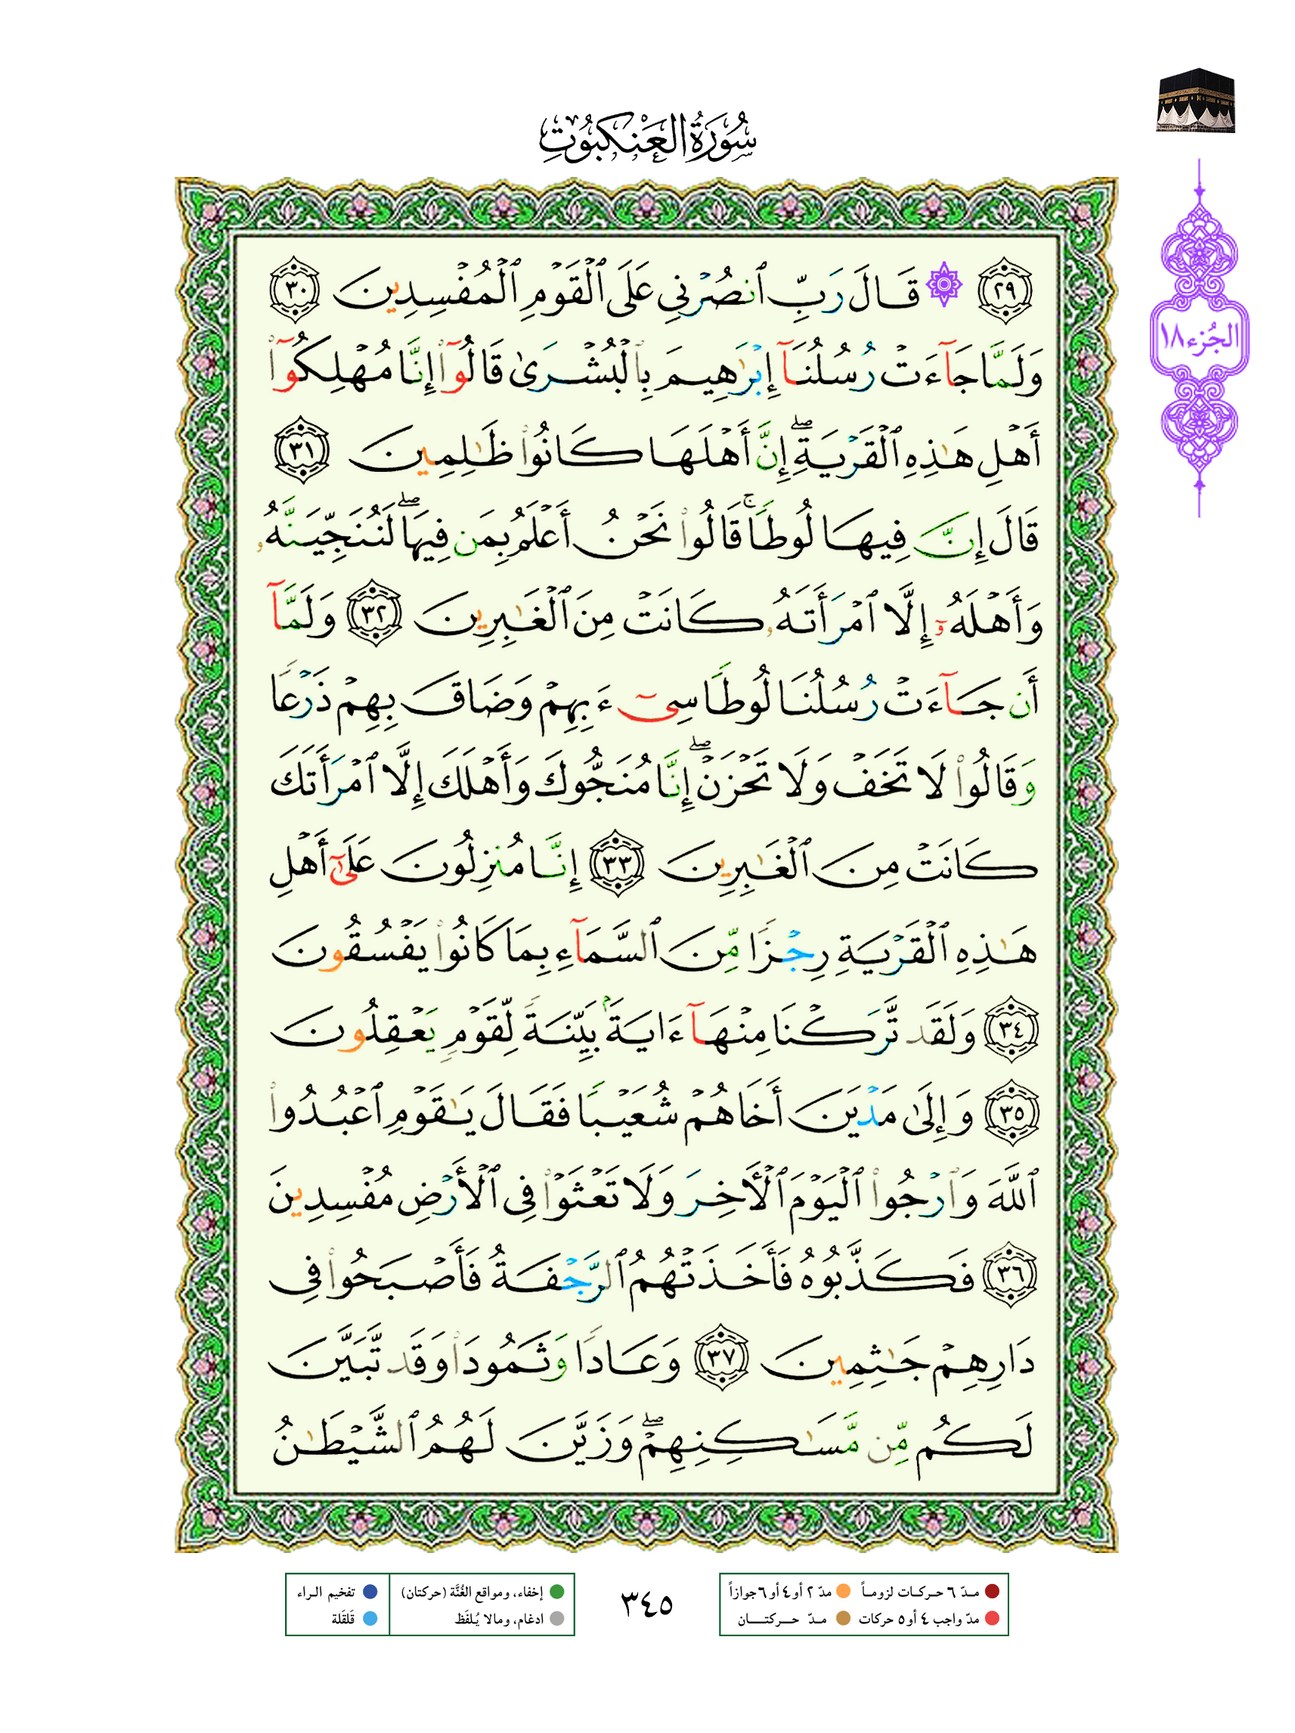 سُورَةُ الْعَنْكَبُوتِ
الجُزء ١٨
٢٩ ۞ قَالَ رَبِّ ٱنصُرْنِى عَلَى ٱلْقَوْمِ ٱلْمُفْسِدِينَ ٣٠
وَلَمَّا جَآءَتْ رُسُلُنَآ إِبْرَٰهِيمَ بِٱلْبُشْرَىٰ قَالُوٓا۟ إِنَّا مُهْلِكُوٓا۟
أَهْلِ هَـٰذِهِ ٱلْقَرْيَةِ ۖ إِنَّ أَهْلَهَا كَانُوا۟ ظَـٰلِمِينَ ٣١
قَالَ إِنَّ فِيهَا لُوطًا ۚ قَالُوا۟ نَحْنُ أَعْلَمُ بِمَن فِيهَا ۖ لَنُنَجِّيَنَّهُۥ
وَأَهْلَهُۥٓ إِلَّا ٱمْرَأَتَهُۥ كَانَتْ مِنَ ٱلْغَـٰبِرِينَ ٣٢ وَلَمَّآ
أَن جَآءَتْ رُسُلُنَا لُوطًا سِىٓءَ بِهِمْ وَضَاقَ بِهِمْ ذَرْعًا
وَقَالُوا۟ لَا تَخَفْ وَلَا تَحْزَنْ ۖ إِنَّا مُنَجُّوكَ وَأَهْلَكَ إِلَّا ٱمْرَأَتَكَ
كَانَتْ مِنَ ٱلْغَـٰبِرِينَ ٣٣ إِنَّا مُنزِلُونَ عَلَىٰٓ أَهْلِ
هَـٰذِهِ ٱلْقَرْيَةِ رِجْزًا مِّنَ ٱلسَّمَآءِ بِمَا كَانُوا۟ يَفْسُقُونَ
٣٤ وَلَقَد تَّرَكْنَا مِنْهَآ ءَايَةًۢ بَيِّنَةً لِّقَوْمٍ يَعْقِلُونَ
٣٥ وَإِلَىٰ مَدْيَنَ أَخَاهُمْ شُعَيْبًا فَقَالَ يَـٰقَوْمِ ٱعْبُدُوا۟
ٱللَّهَ وَٱرْجُوا۟ ٱلْيَوْمَ ٱلْـَٔاخِرَ وَلَا تَعْثَوْا۟ فِى ٱلْأَرْضِ مُفْسِدِينَ
٣٦ فَكَذَّبُوهُ فَأَخَذَتْهُمُ ٱلرَّجْفَةُ فَأَصْبَحُوا۟ فِى
دَارِهِمْ جَـٰثِمِينَ ٣٧ وَعَادًا وَثَمُودَا۟ وَقَد تَّبَيَّنَ
لَكُم مِّن مَّسَـٰكِنِهِمْ ۖ وَزَيَّنَ لَهُمُ ٱلشَّيْطَـٰنُ
مدّ ٦ حركات لزوماً
مدّ ٢ أو ٤ أو ٦ جوازاً
مدّ واجب ٤ أو ٥ حركات
مدّ حركتان
٣٤٥
إخفاء، ومواقع الغُنَّة (حركتان)
تفخيم الراء
ادغام، ومالا يُلفَظ
قَلقَلة